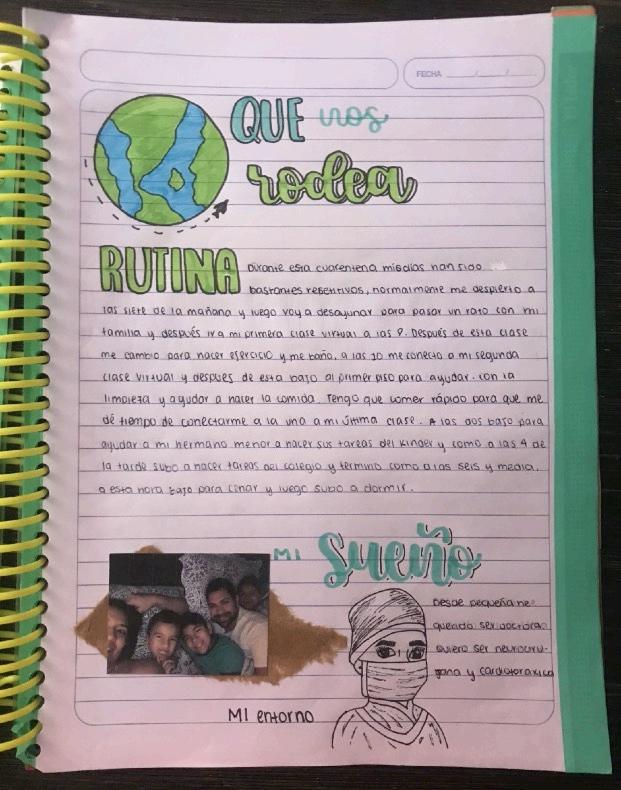 FECHA
QUE nos
rodea
RUTINA
Durante esta cuarentena mis dias han sido
bastantes repetitivos, normalmente me despierto a
las siete de la mañana y luego voy a desayunar para pasar un rato con mi
familia y después ir a mi primera clase virtual a las 8. Después de esta clase
me cambio para hacer ejercicio y me baño, a las 10 me conecto a mi segunda
clase virtual y despues de esta bajo al primer piso para ayudar con la
limpieza y ayudar a hacer la comida. Tengo que comer rápido para que me
dé tiempo de conectarme a la una a mi última clase. A las dos bajo para
ayudar a mi hermano menor a hacer sus tareas del kinder y como a las 4 de
la tarde subo a hacer tareas del colegio y termino como a las seis y media,
a esta hora bajo para cenar y luego subo a dormir.
MI Sueño
Desde pequeña he
querido ser doctora
quiero ser neurociru-
jana y cardiotoraxica
MI entorno